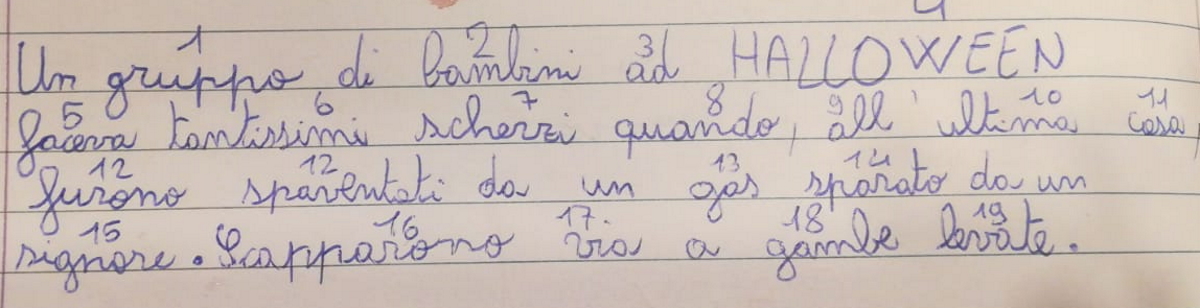 1 2 3 4
Un gruppo di bambini ad HALLOWEEN
5 6 7 8 9 10 11
faceva tantissimi scherzi quando, all'ultima casa,
12 12 13 14
furono spaventati da un gas sparato da un
15 16 17. 18 19
signore. Scapparono via a gambe levate.